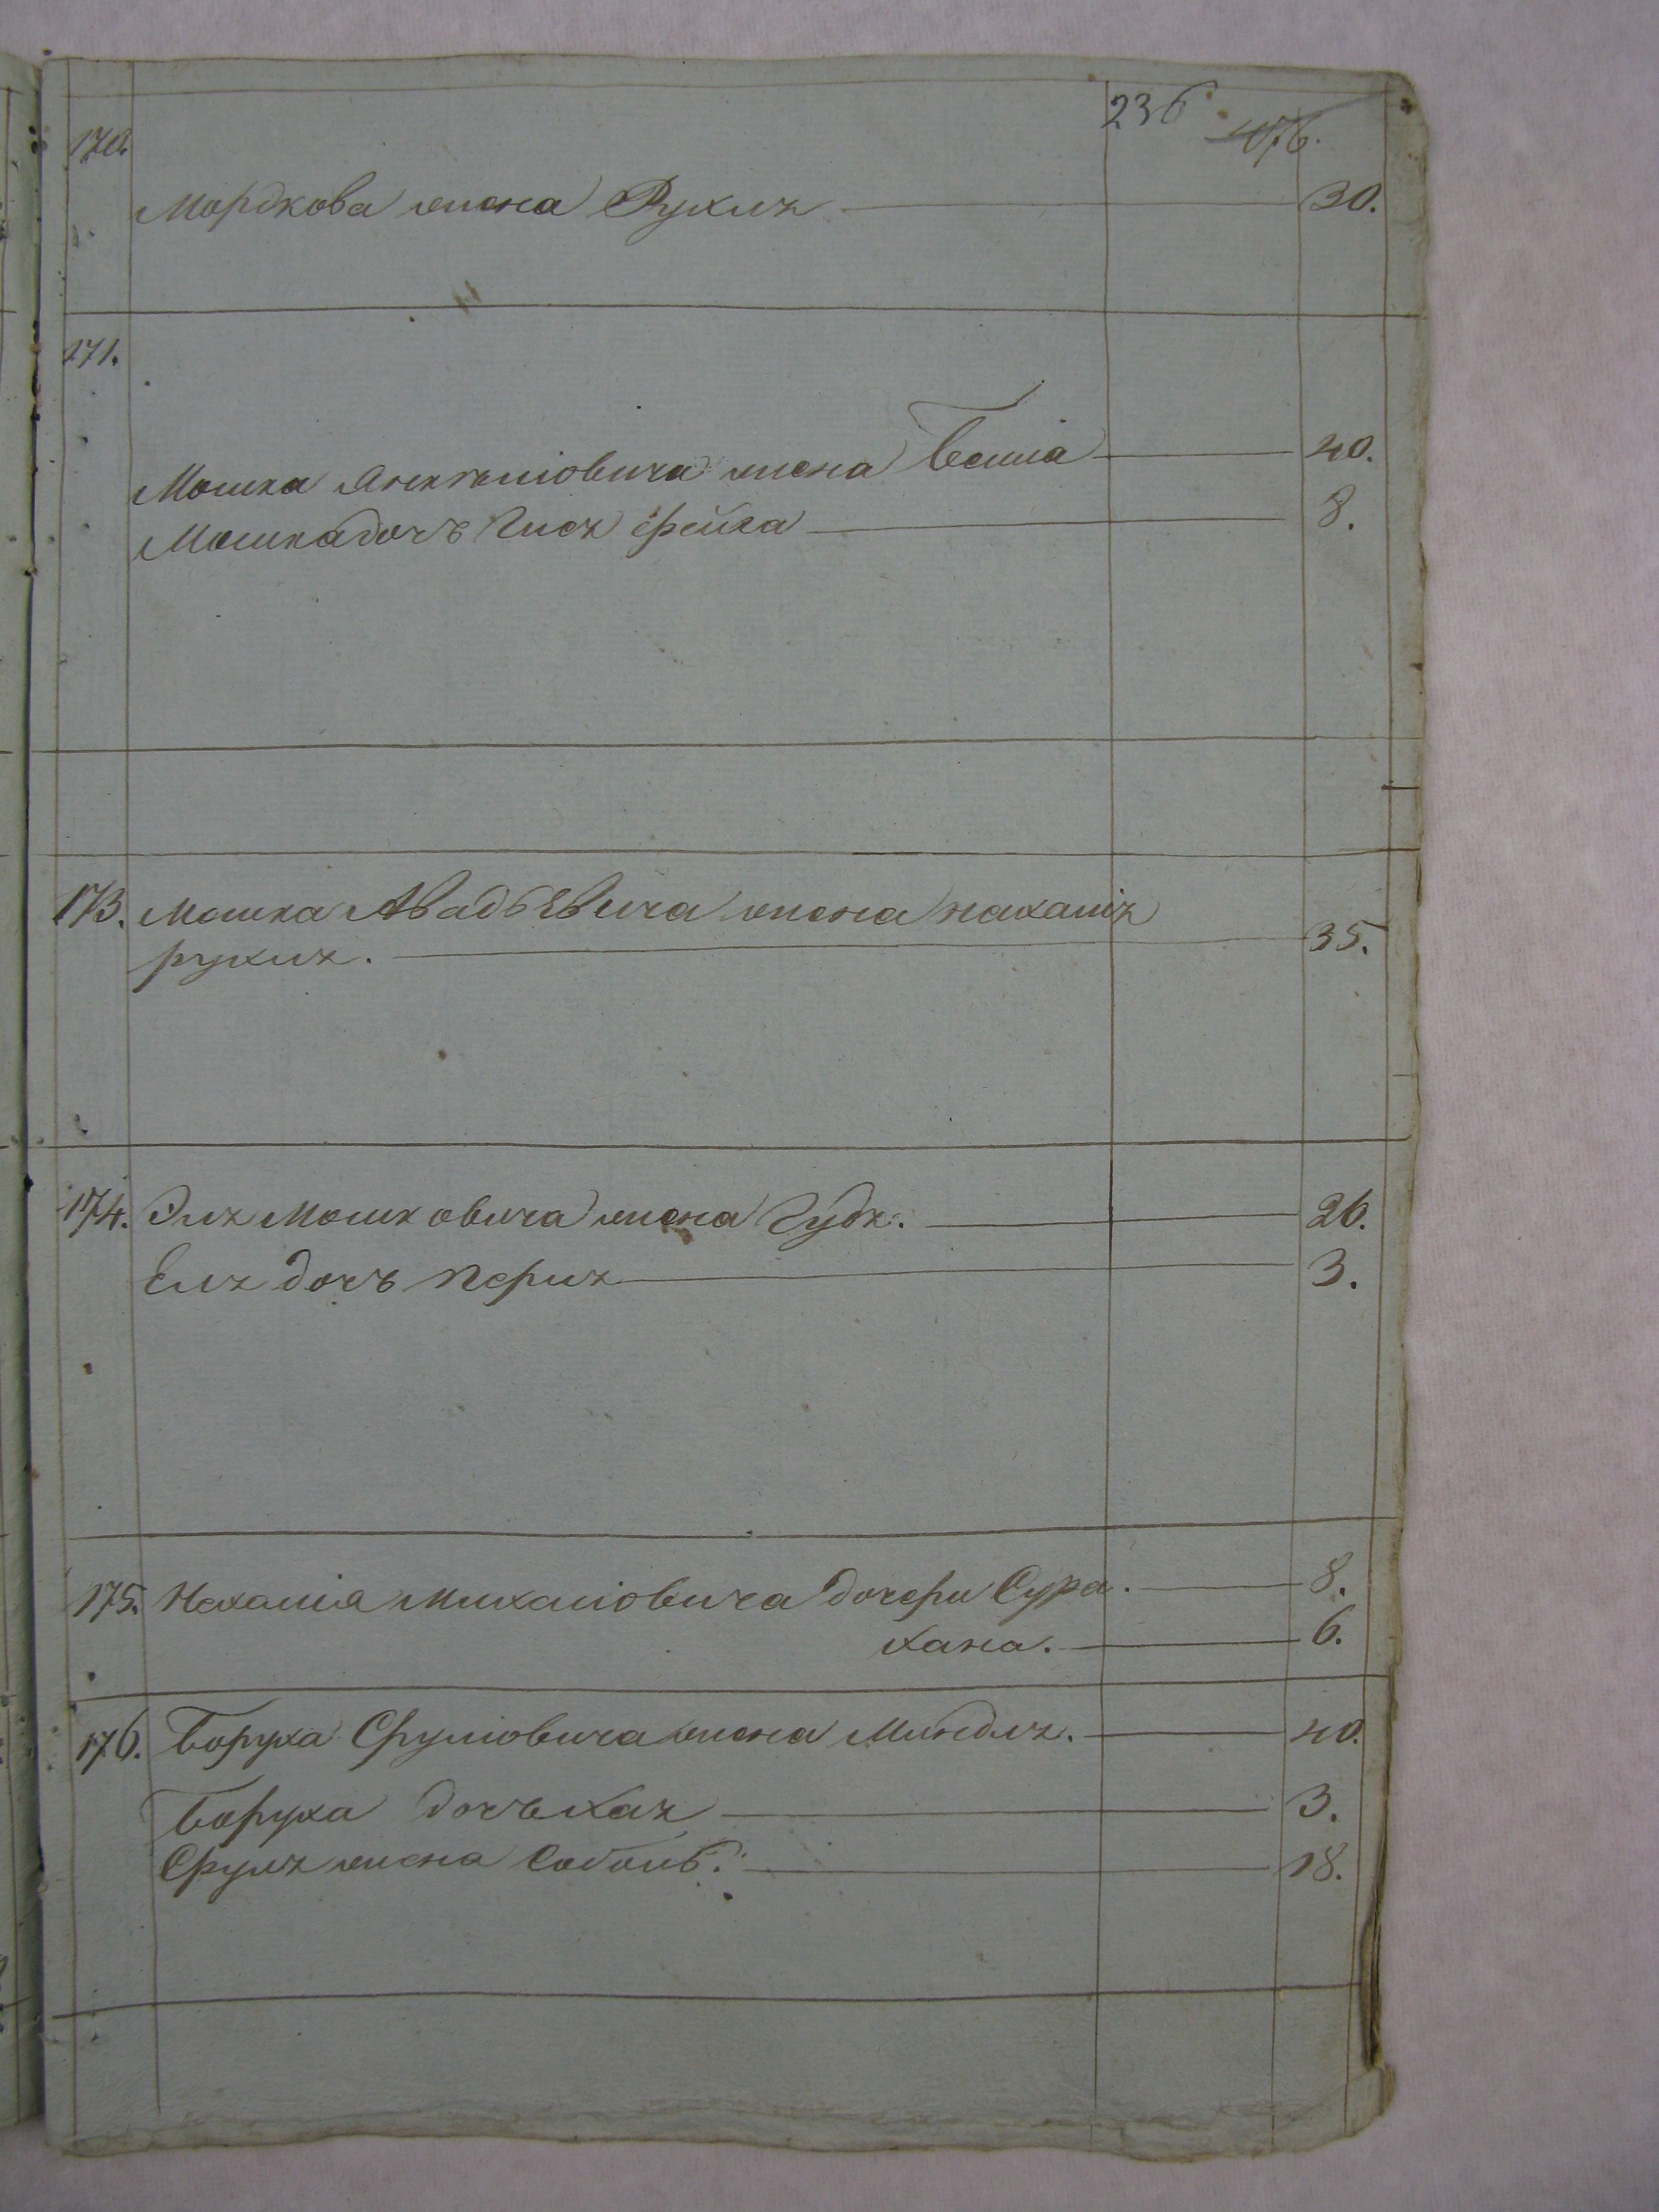 236 476.
170.
Мордкова жена Рухля 30.
171.
Мошка жена Бейла 40.
Мошка дочь Гися Фейга 8.
173. Мошка Авадьевича жена Нахамія
рухля. 35.
174. Эля Мошковича жена Гудя. 26.
Еля дочь Перля 3.
175. Нахамія Михаліовича дочери Сура. 8.
Хана. 6.
176. Боруха Сруліовича жена Миндля. 40.
Боруха дочь Хая 3.
Сруля жена 18.